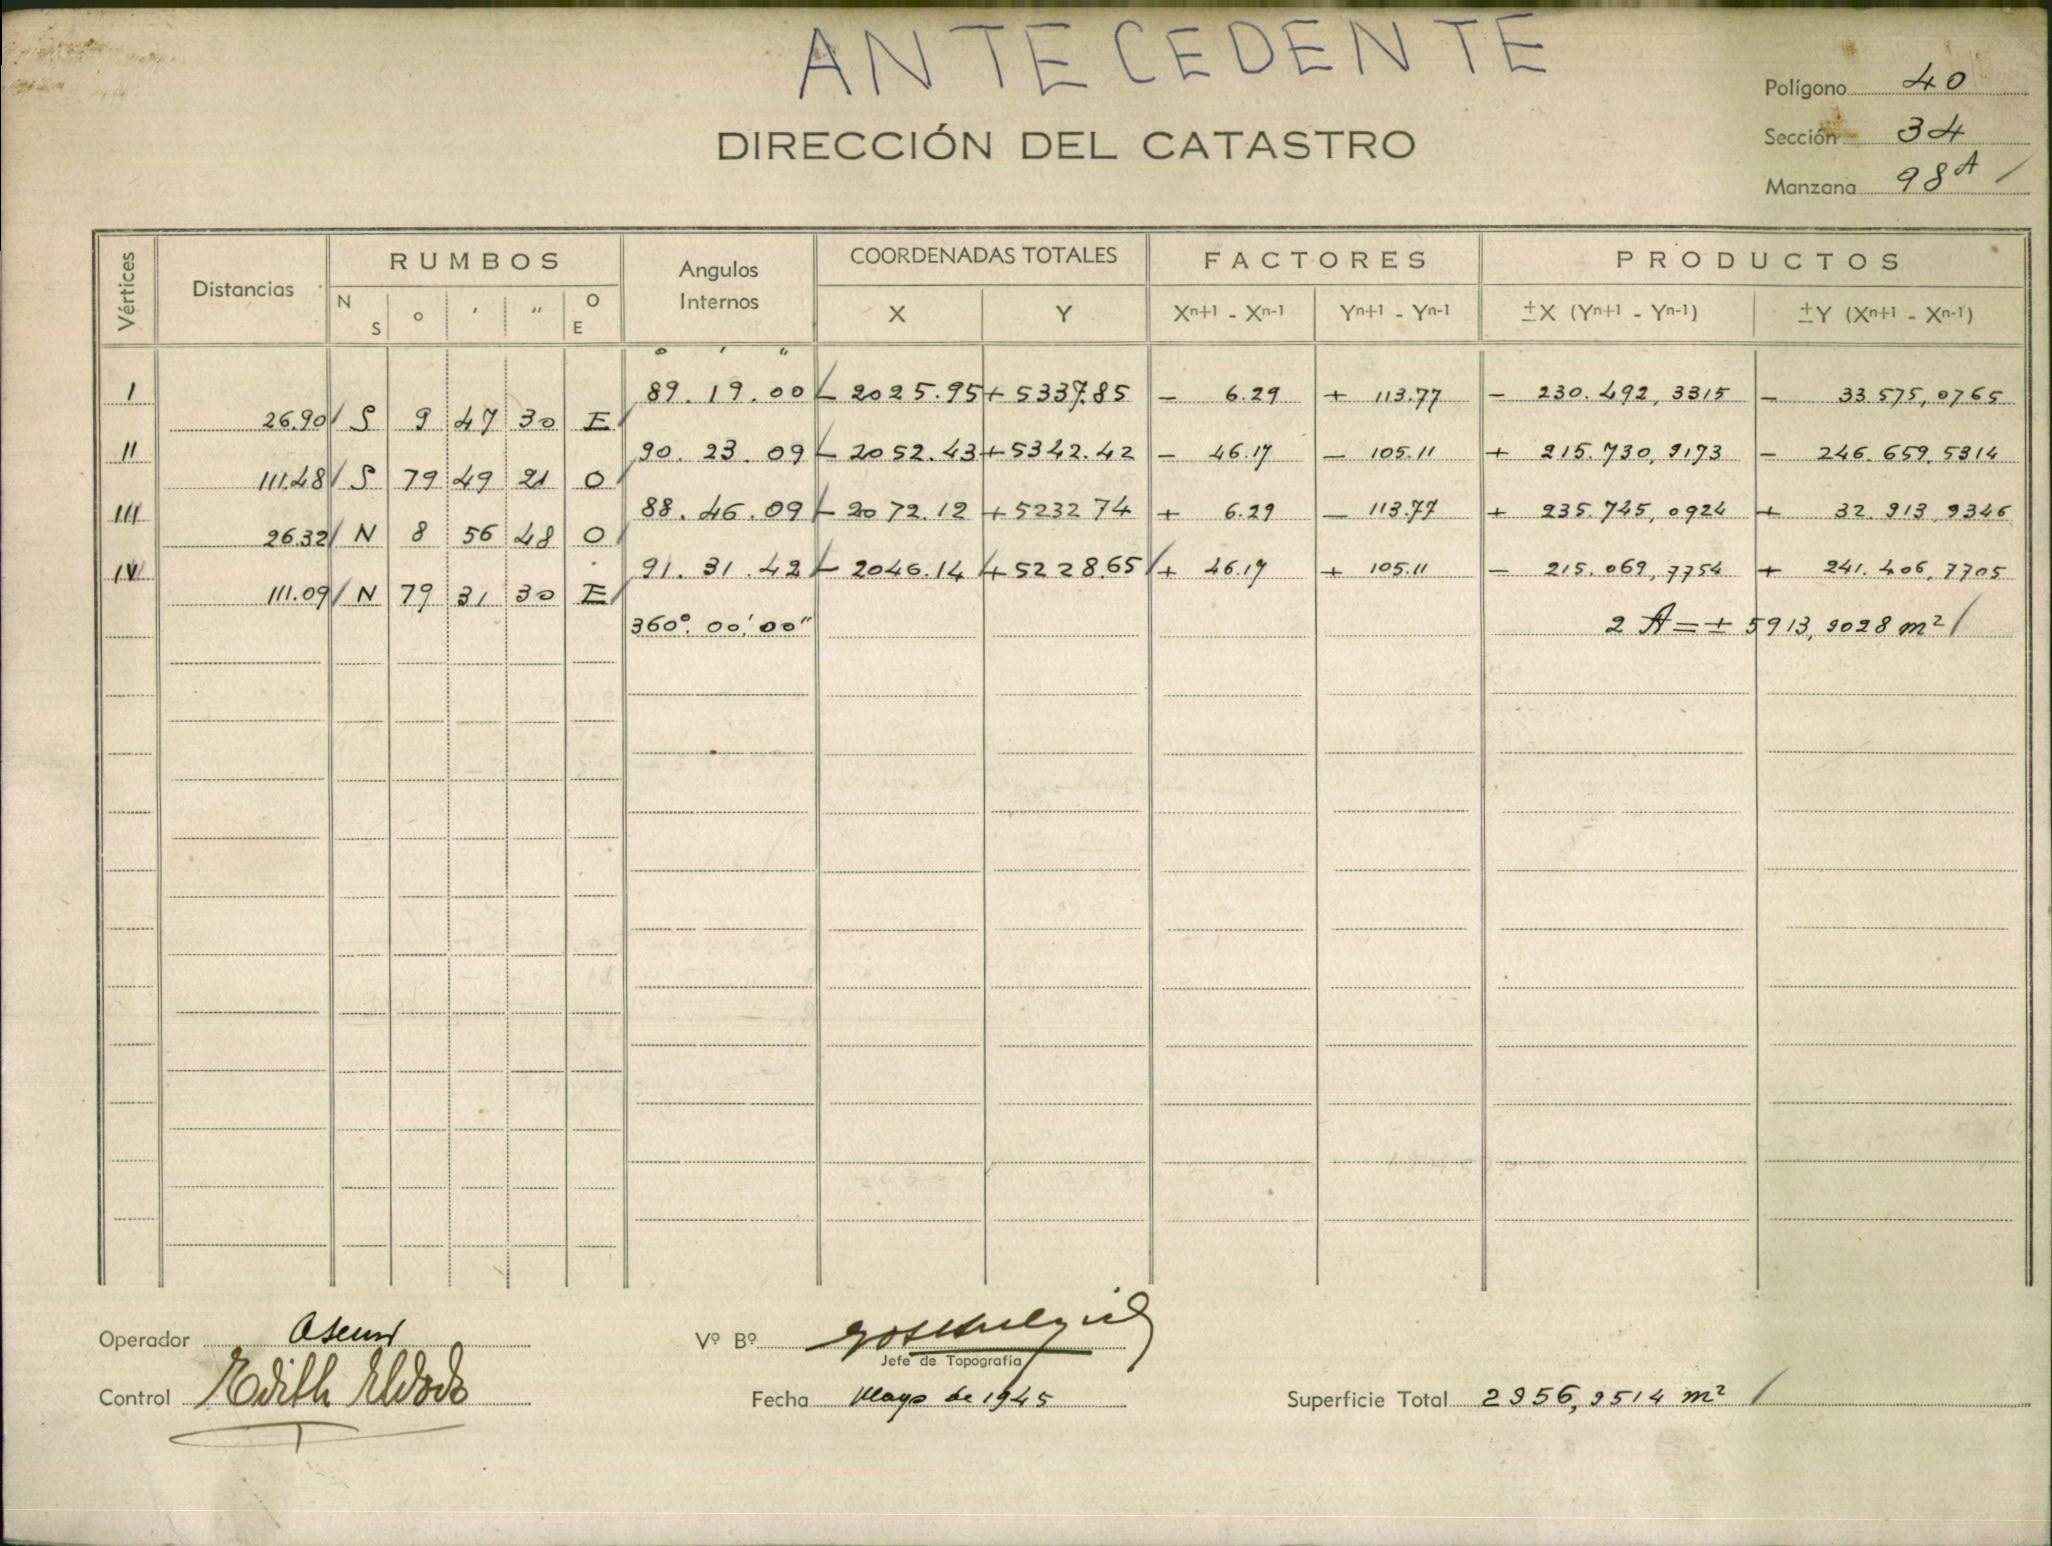 ANTECEDENTE
DIRECCIÓN DEL CATASTRO
Polígono 40
Sección 34
Manzana 98A /
Vértices Distancias RUMBOS Angulos Internos COORDENADAS TOTALES FACTORES PRODUCTOS
N S ° ' " O E X Y Xn+1 - Xn-1 Yn+1 - Yn-1 ±X (Yn+1 - Yn-1) ±Y (Xn+1 - Xn-1)
° ' "
I 89.19.00 - 2025.95 + 5337.85 - 6.29 + 113.77 - 230.492,3315 - 33.575,0765
26.90 / S 9 47 30 E /
II 90.23.09 - 2052.43 + 5342.42 - 46.17 - 105.11 + 215.730,9173 - 246.659,5314
111.48 / S 79 49 21 O /
III 88.46.09 - 2072.12 + 5232 74 + 6.29 - 113.77 + 235.745,0924 + 32.913,9346
26.32 / N 8 56 48 O /
IV 91.31.42 - 2046.14 + 5228.65 / + 46.17 + 105.11 - 215.069,7754 + 241.406,7705
111.09 / N 79 31 30 E /
360°.00'.00" 2 A = ± 5913,9028 m² /
Operador Vº Bº
Jefe de Topografía
Control Edith
Fecha Mayo de 1945
Superficie Total 2956,9514 m² /